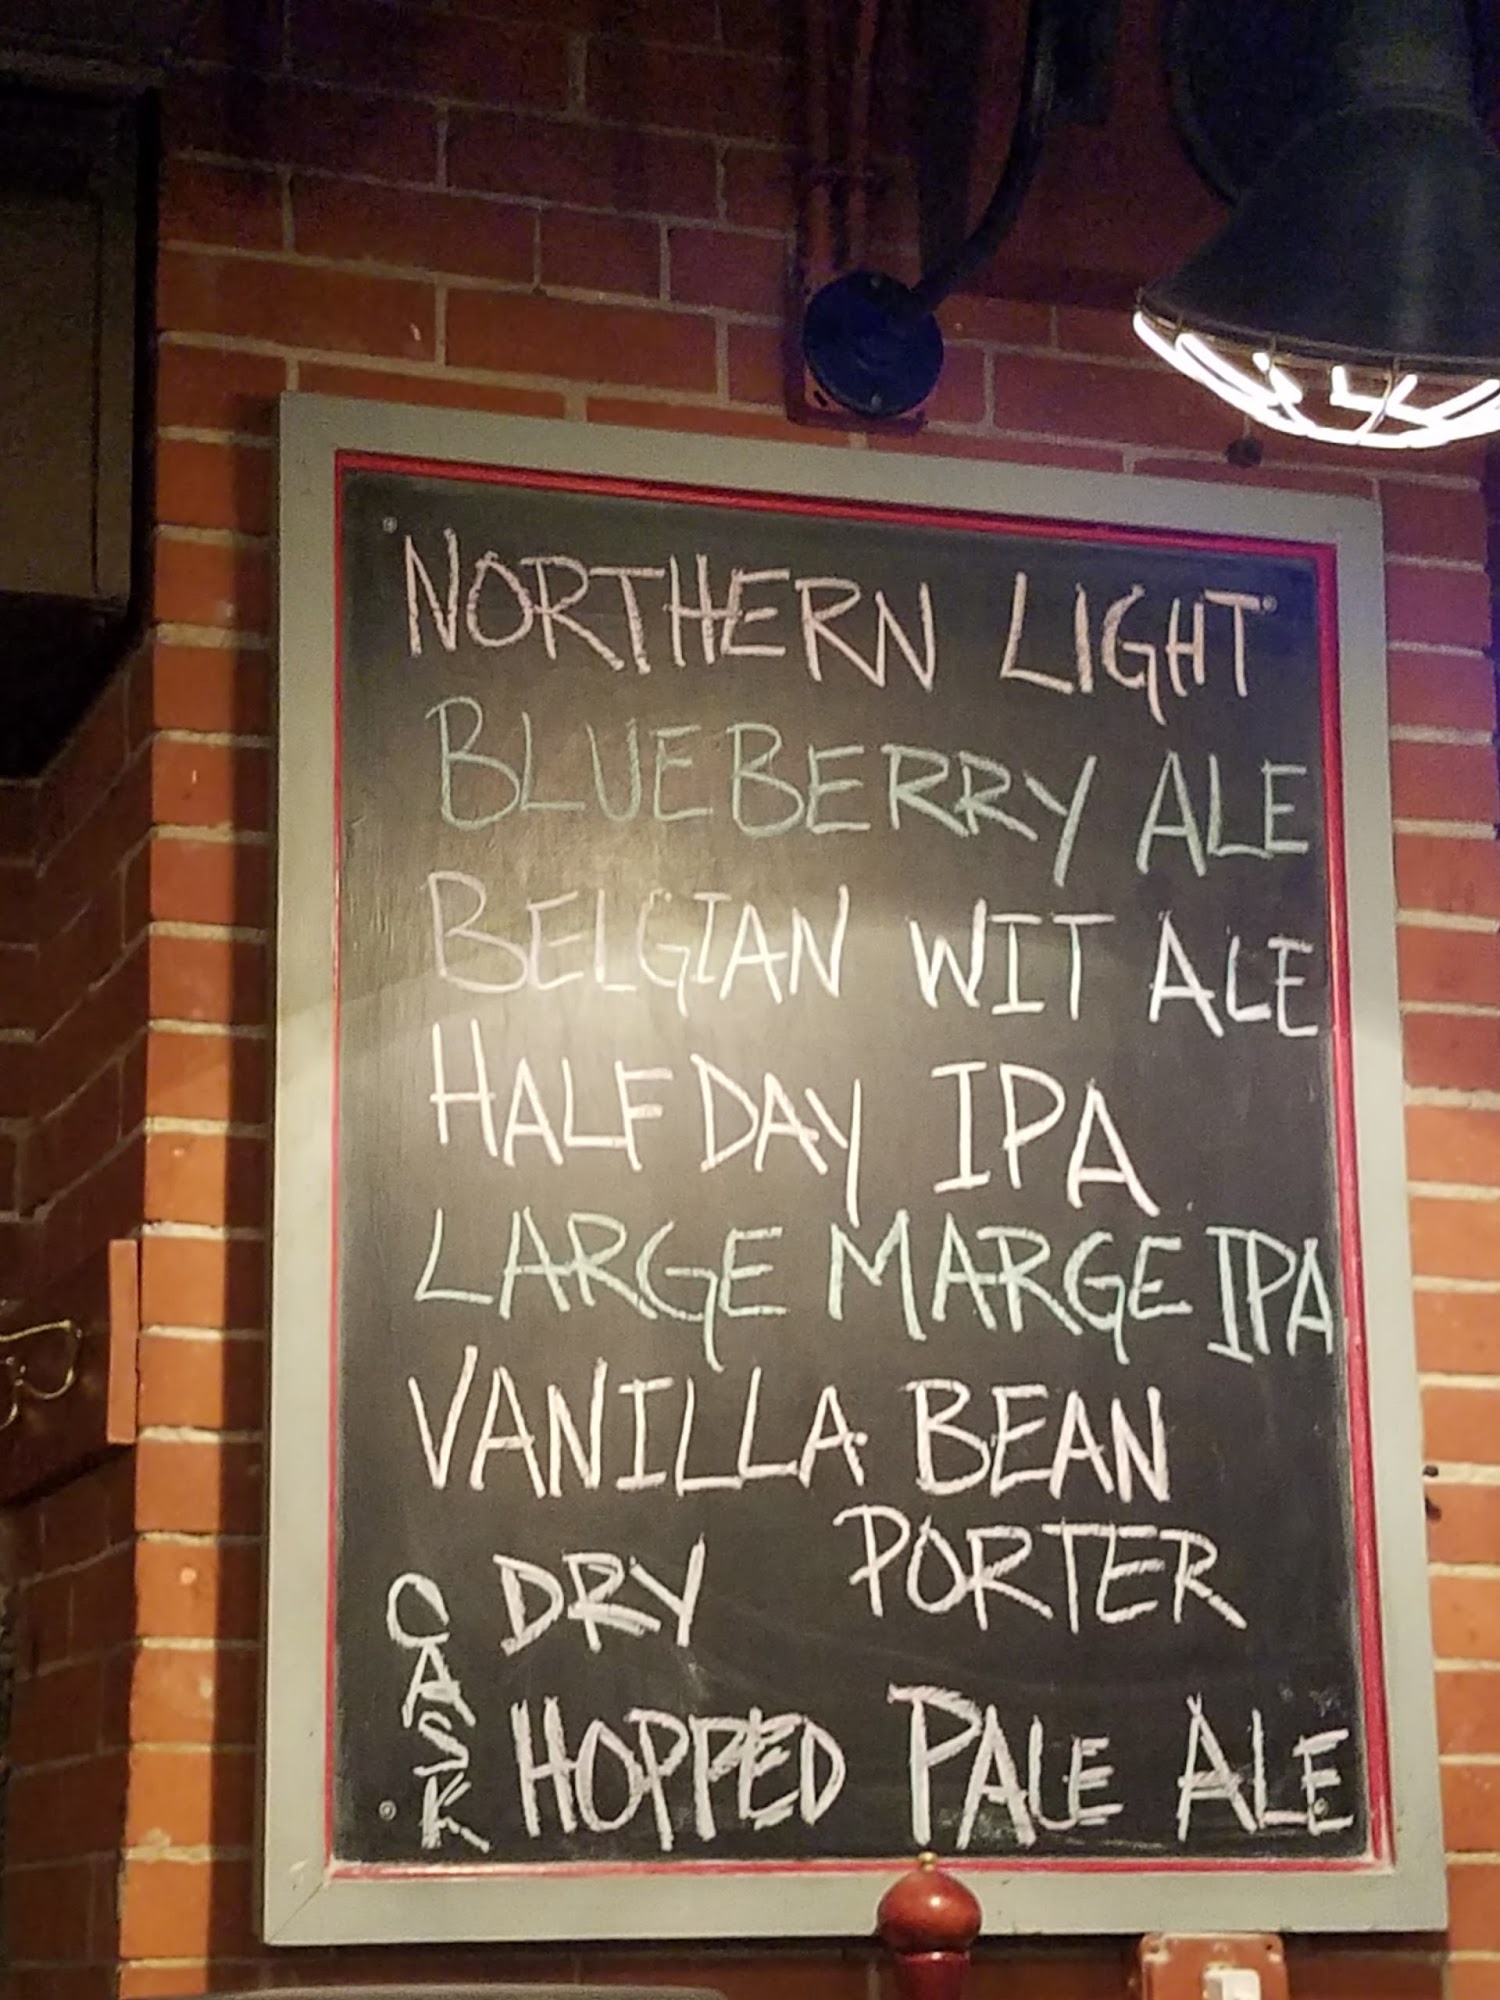 NORTHERN LIGHT
BLUEBERRY ALE
BELGIAN WIT ALE
HALF DAY IPA
LARGE MARGE IPA
VANILLA BEAN
PORTER
CASK
DRY
HOPPED PALE ALE